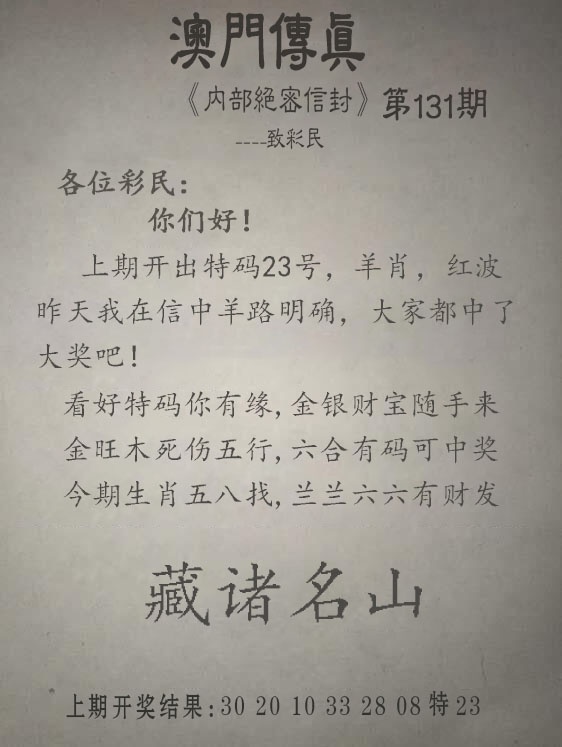 澳門傳眞
《内部絕密信封》第131期
----致彩民
各位彩民:
你们好!
上期开出特码23号，羊肖，红波
昨天我在信中羊路明确，大家都中了
大奖吧!
看好特码你有缘,金银财宝随手来
金旺木死伤五行,六合有码可中奖
今期生肖五八找,兰兰六六有财发
藏诸名山
上期开奖结果:30 20 10 33 28 08 特 23